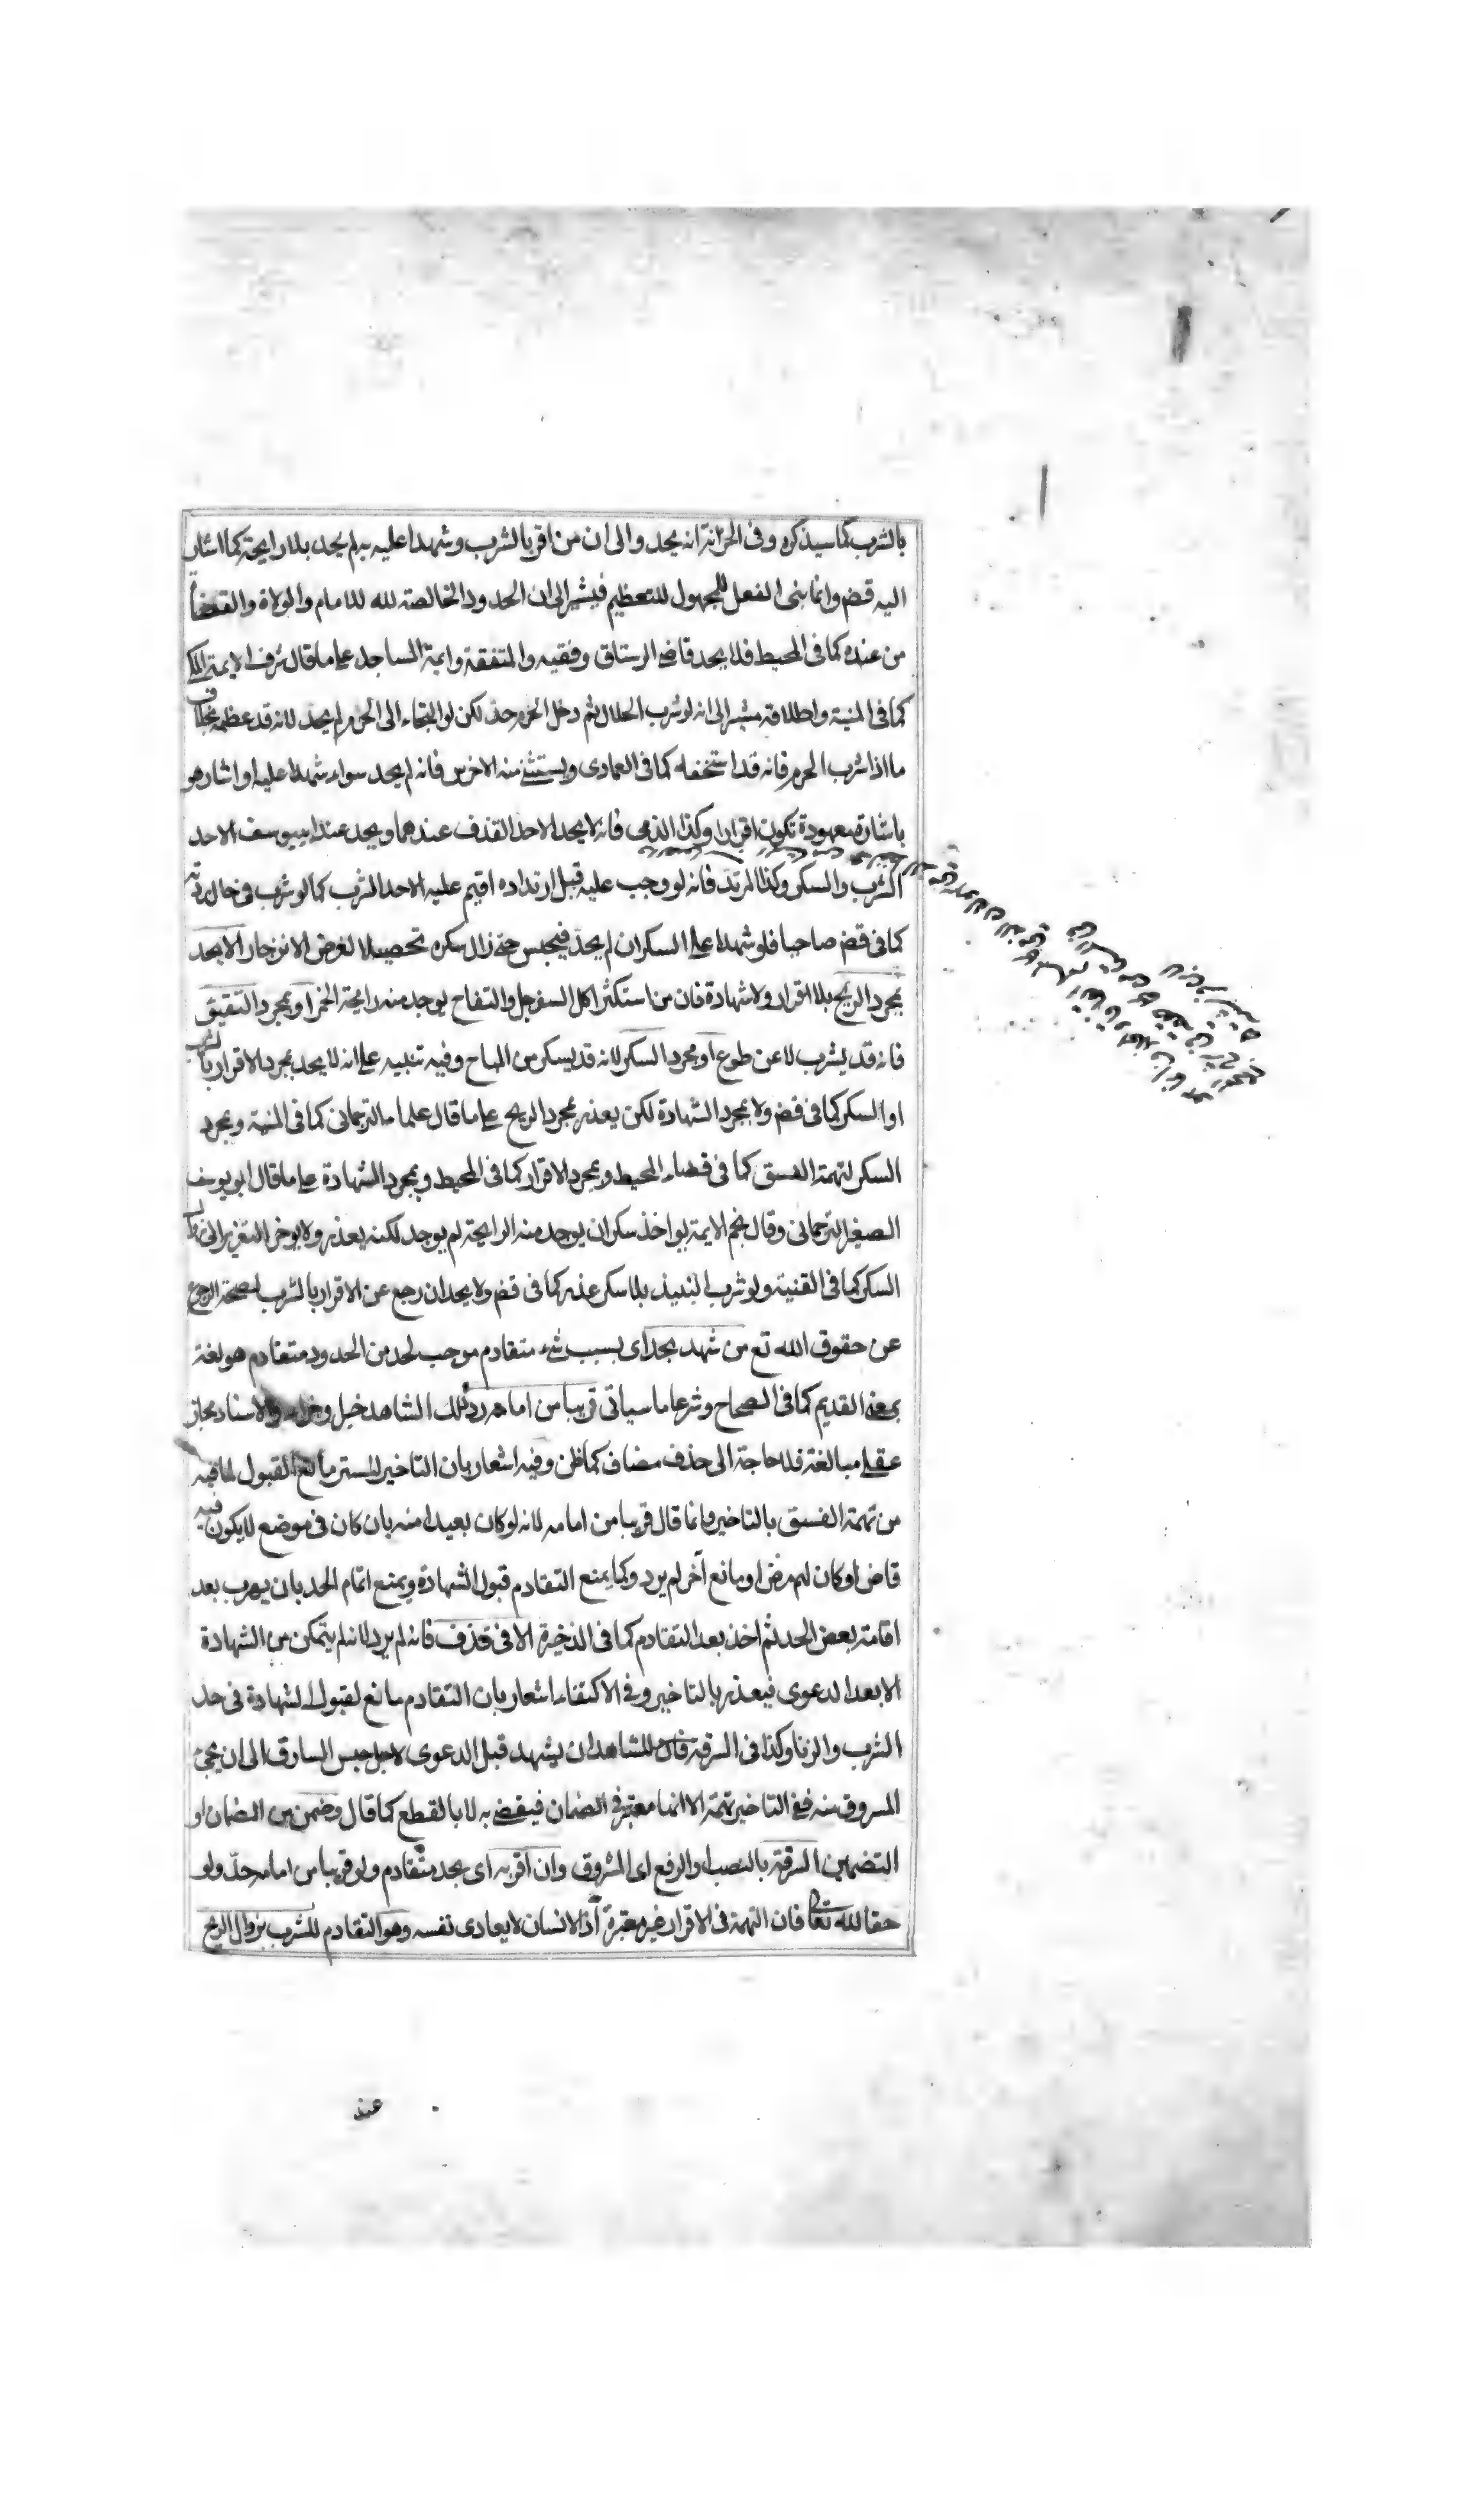 بالشرب كما سيذكره وفى الخزانة انه يحد والى ان من اقر بالشرب وشهدا عليه به لم يحد بلا رايحة كما اشار
اليه قضـ وانما بنى الفعل للمجهول للتعظيم فيشير الى ان الحدود الخالصة لله للامام والولاة والقضاة
من عنده كما فى المحيط فلا يحد قاضى الرستاق وفقيه والمتفقة وايمة المساجد على ما قال شرف الايمة
كما فى المنية واطلاقه مشير الى انه لو شرب الحلال ثم دخل الحرم حد لكن لو التجاء الى الحرم لم يحد لانه قد عظمه بخلاف
ما اذا شرب الحرم فانه قد استخفه كما فى العمادى ويستثنى منه الاخرس فانه لم يحد سواء شهدا عليه او اشار هو
باشارة معهودة تكون اقرارا وكذا الذمى فانه لا يحد الا حد القذف عندهما ويحد عند ابيوسف الا حد
الشرب والسكر وكذا المرتد فانه لو وجب عليه قبل ارتداده اقيم عليه الا حد الشرب كما لو شرب فى حال ردته
كما فى قضـ صاحيا فلو شهدا على السكران لم يحد فيحبس حتى زال سكره تحصيلا لغرض الانزجار لا يحد
بمجرد الريح بلا اقرار ولا شهادة فان من استكثر اكل السفرجل والتفاح يوجد منه رايحة الخمر او بمجرد التقيق
فانه قد يشرب لا عن طوع او مجرد السكر لانه قد يسكر من المباح وفيه تنبيه على انه لا يحد بمجرد الاقرار بالشرب
او السكر كما فى قضـ ولا بمجرد الشهادة لكن يعذر بمجرد الريح على ما قال علما الترجمانى كما فى المنية وبمجرد
السكر لتهمة الفسق كما فى قضاء المحيط وبمجرد الاقرار كما فى المحيط وبمجرد الشهادة على ما قال ابو يوسف
الصغير الترجمانى وقال نجم الايمة لو اخذ سكران يوجد منه الرايحة لم يوجد لكنه يعذر ولا يوخر التعزير الى
السكر كما فى القنية ولو شرب النبيذ بلا سكر عذر كما فى قضـ ولا يحد ان رجع عن الاقرار بالشرب لصحة الرجوع
عن حقوق الله تع من شهد بحد اى بسبب شىء متقادم موجب لحد من الحدود متقادم هو لغة
بمعنى القديم كما فى الصحاح وشرعا ما سياتى قريبا من امامه رد ذلك الشاهد والاسناد مجاز
عقلى مبالغة فلا حاجة الى حذف مضاف كما ظن وفيه اشعار بان التاخير للستر مانع القبول لما فيه
من تهمة الفسق بالتاخير وانما قال قريبا من امامه لانه لو كان بعيدا منه بان كان فى موضع لا يكون فيه
قاض او كان لهم مرض او مانع آخر لم يرد وكما يمنع التقادم قبول الشهادة ويمنع اتمام الحد بان يهرب بعد
اقامة بعض الحد ثم اخذ بعد التقادم كما فى الذخيرة الا فى قذف فانه لم يرد لانه لم يتمكن من الشهادة
الا بعد الدعوى فيعذر بالتاخير وفى الاكتفاء اشعار بان التقادم مانع لقبول الشهادة فى حد
الشرب والزنا وكذا فى السرقة فان للشاهد ان يشهد قبل الدعوى لاجل حبس السارق الى ان يجئ
المسروق منه ففى التاخير تهمة الا انها معتبر فى الضمان فيقضى به لا بالقطع كما قال وضمن من الضمان او
التضمين السرقة بالنصب او الرفع اى المسروق وان اقر به اى بحد متقادم ولو قريبا من امامه حد ولو
حقا لله تعا فان التهمة فى الاقرار غير معتبرة اذ الانسان لا يعادى نفسه وهو التقادم للشرب بزوال الريح
عند